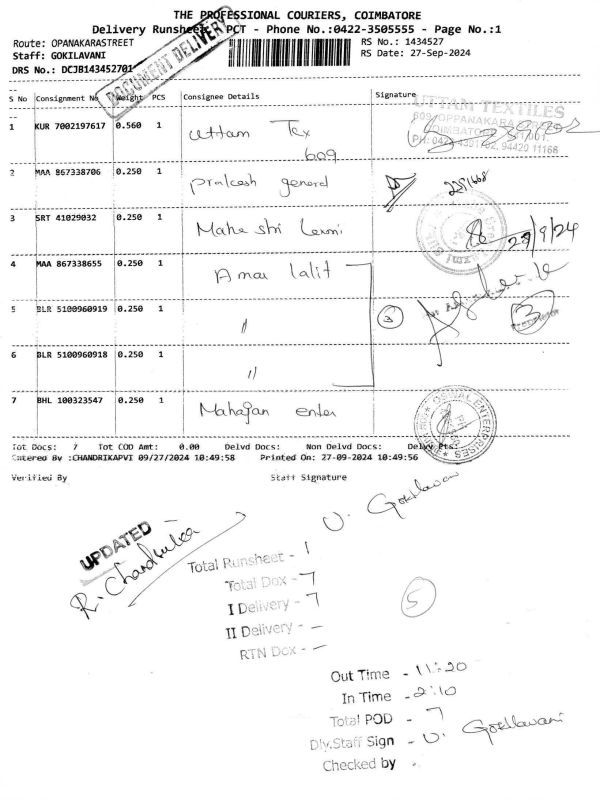 THE PROFESSIONAL COURIERS, COIMBATORE
Delivery Runsheet PCT - Phone No.:0422-3505555 - Page No.:1
Route: OPANAKARASTREET
RS No.: 1434527
Staff: GOKILAVANI
RS Date: 27-Sep-2024
DRS No.: DCJB143452701
DOCUMENT DELIVERY
S No Consignment No Weight PCS Consignee Details Signature
UTTAM TEXTILES
1 KUR 7002197617 0.560 1 Uttam Tex
609
2 MAA 867338706 0.250 1 prakash general
3 SRT 41029032 0.250 1 Mahe shri Laxmi
4 MAA 867338655 0.250 1 Amar lalit
5 BLR 5100960919 0.250 1 "
3
3
6 BLR 5100960918 0.250 1 "
7 BHL 100323547 0.250 1 Mahajan enter
OSWAL ENTERPRISES
Tot Docs: 7 Tot COD Amt: 0.00 Delvd Docs: Non Delvd Docs: Delvy Pts:
Entered By :CHANDRIKAPVI 09/27/2024 10:49:58 Printed On: 27-09-2024 10:49:56
Verified By Staff Signature
U. Gokilavani
UPDATED
R. Chandrika
Total Runsheet - 1
Total Dox - 7
I Delivery - 7
5
II Delivery - -
RTN Dox - -
Out Time - 11:20
In Time - 2:10
Total POD - 7
Dly.Staff Sign - U. Gokilavani
Checked by -